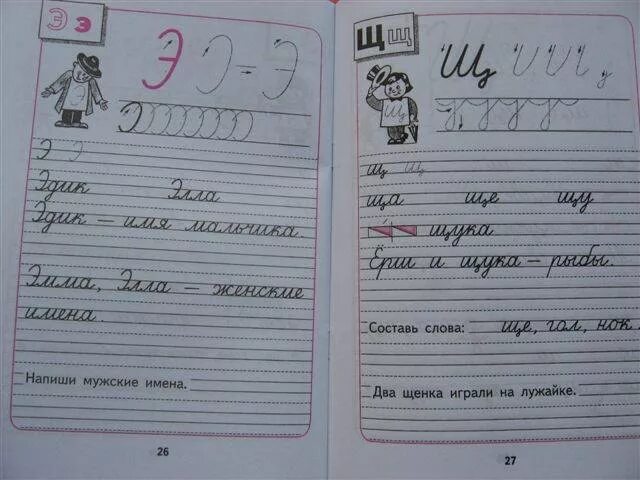 Э э
Э Э = Э
Э
Э Э
Эдик Элла
Эдик — имя мальчика.
Эмма, Элла — женские
имена.
Напиши мужские имена.
26
Щ щ
Щ
Щ
щ щ
ща ще щу
щука
Ёрш и щука — рыбы.
Составь слова: ще, гол, нок
Два щенка играли на лужайке.
27